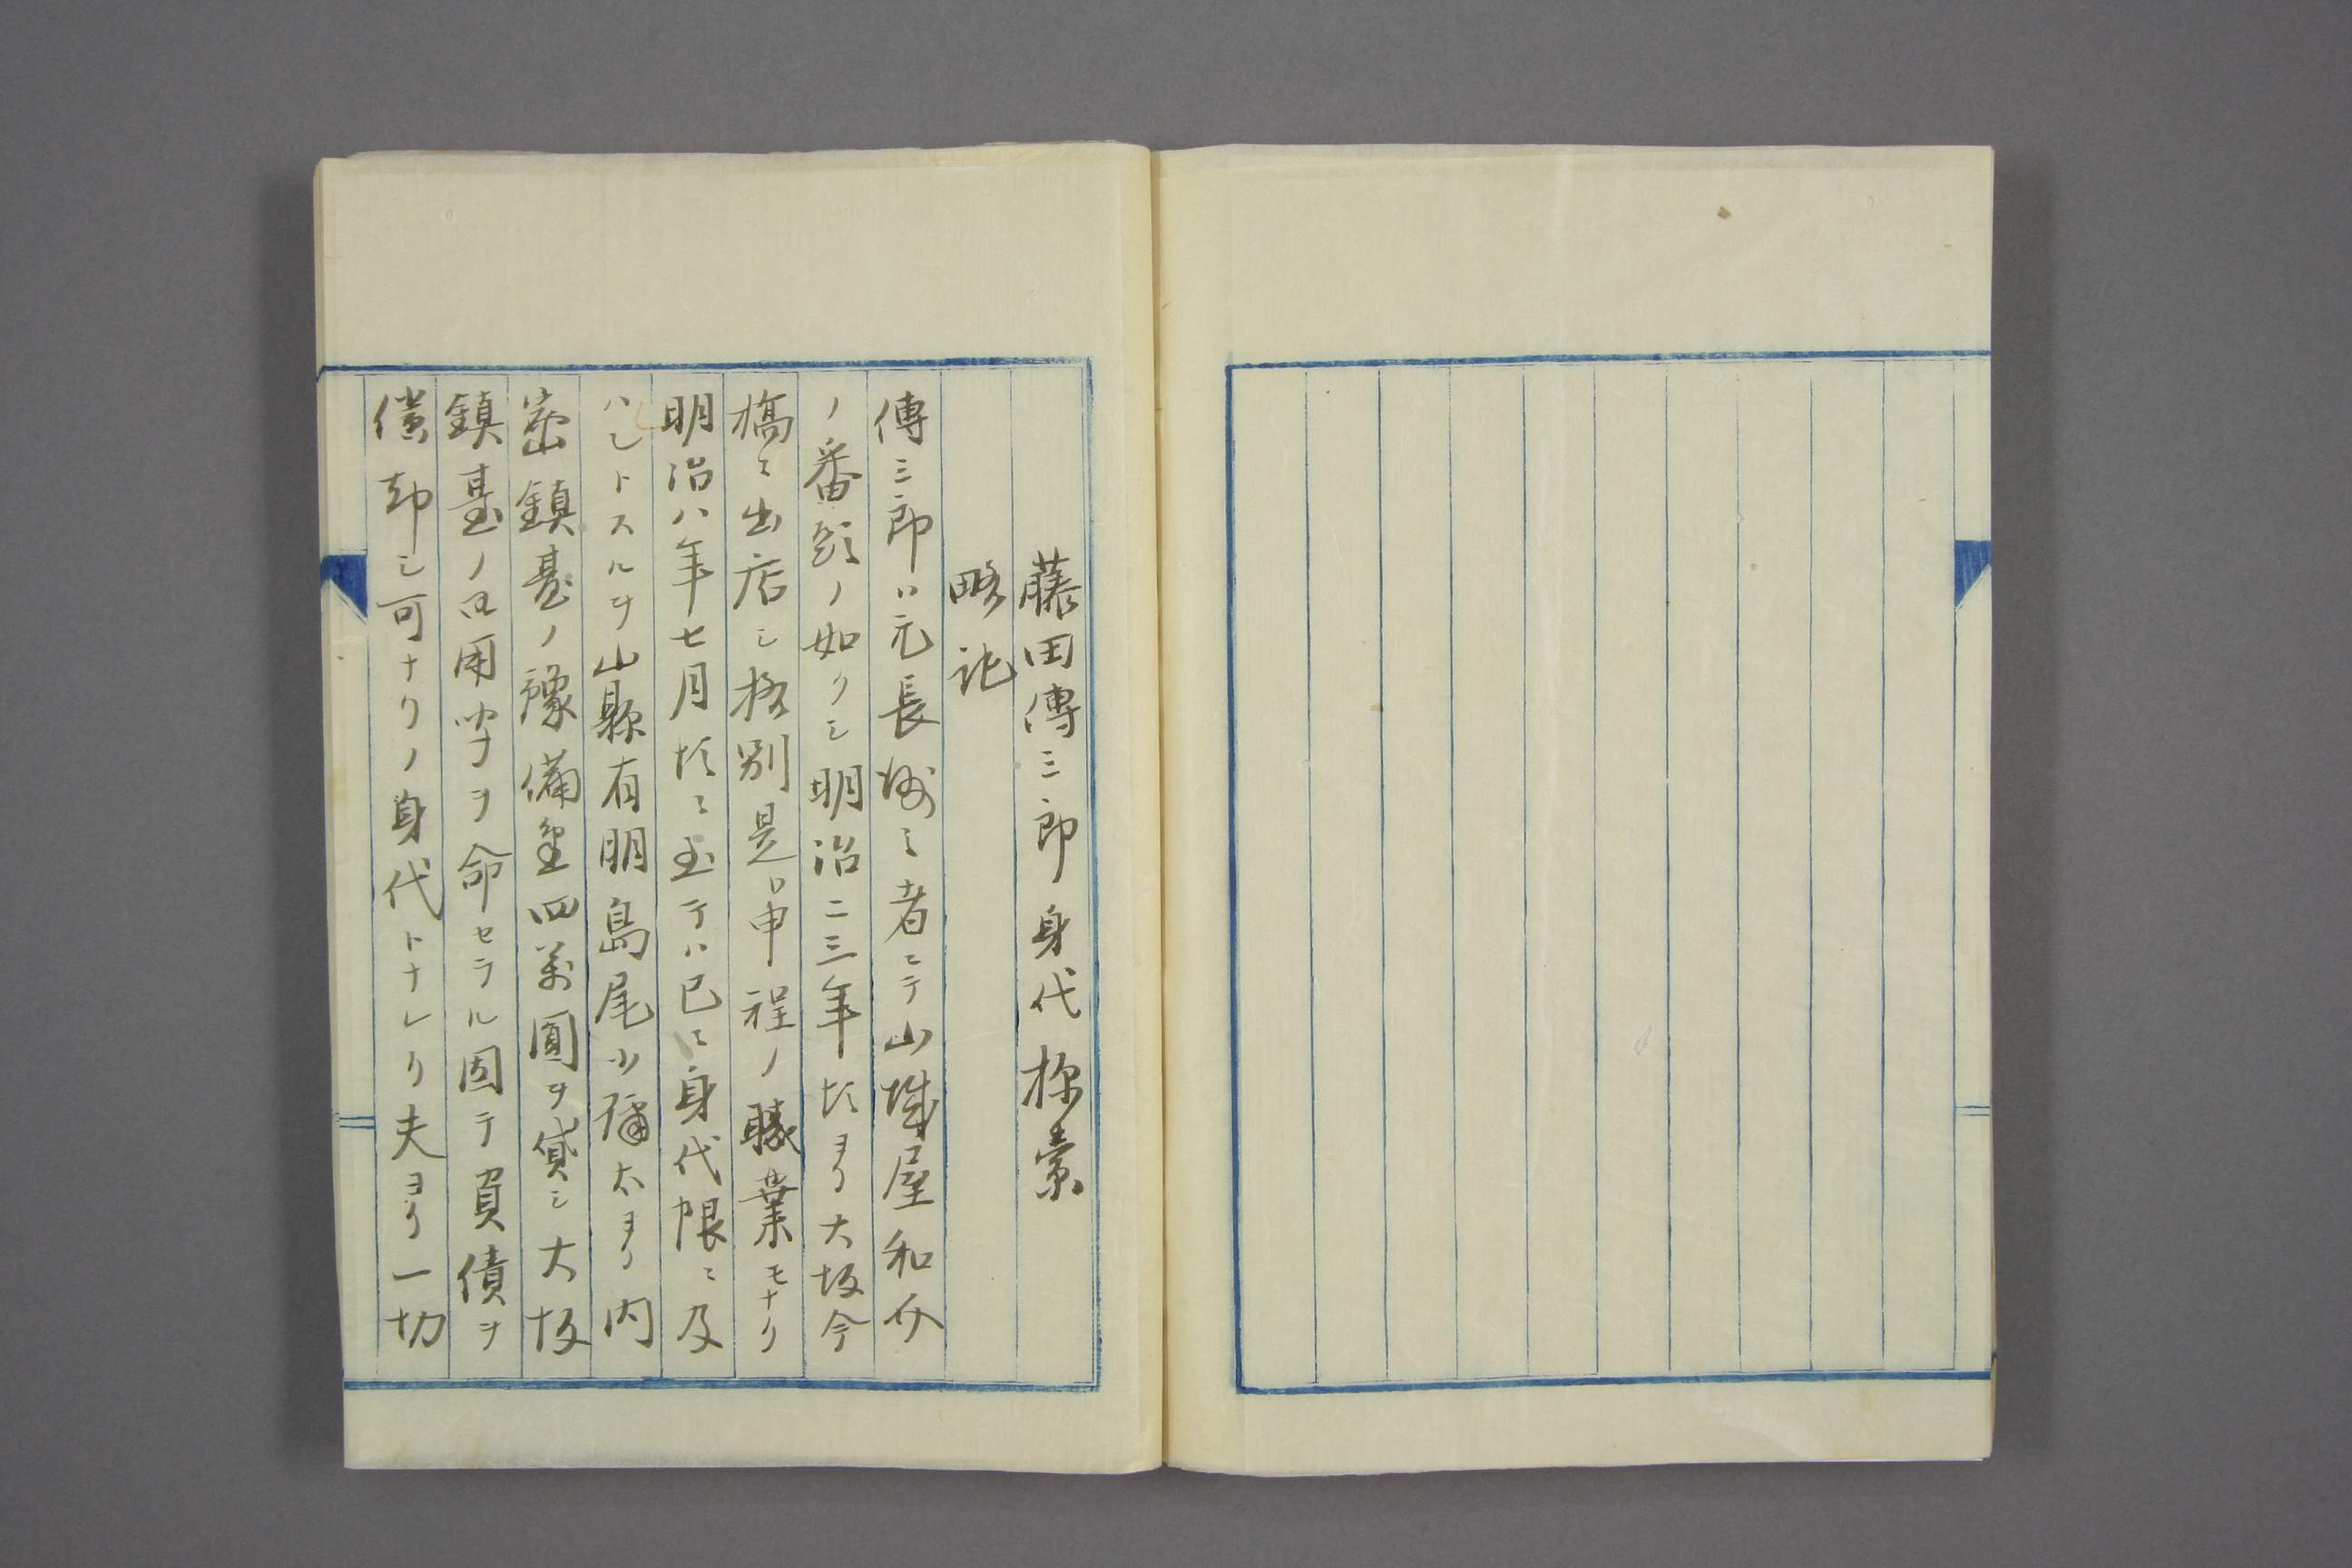 藤田傳三郎身代探索
略記
傳三郎ハ元長州ノ者ニテ山城屋和介
ノ番頭ノ如クシ明治二三年頃ヨリ大坂今
橋ニ出店シ格別是ロ申程ノ職業モナク
明治八年七月頃ニ至テハ已ニ身代限ニ及
ハントスルヲ山縣有朋鳥尾小彌太ヨリ内
密鎮臺ノ豫備金四萬圓ヲ貸シ大坂
鎮臺ノ用崋ヲ命セラル因テ負債ヲ
償却シ可ナリノ身代トナレリ夫ヨリ一切